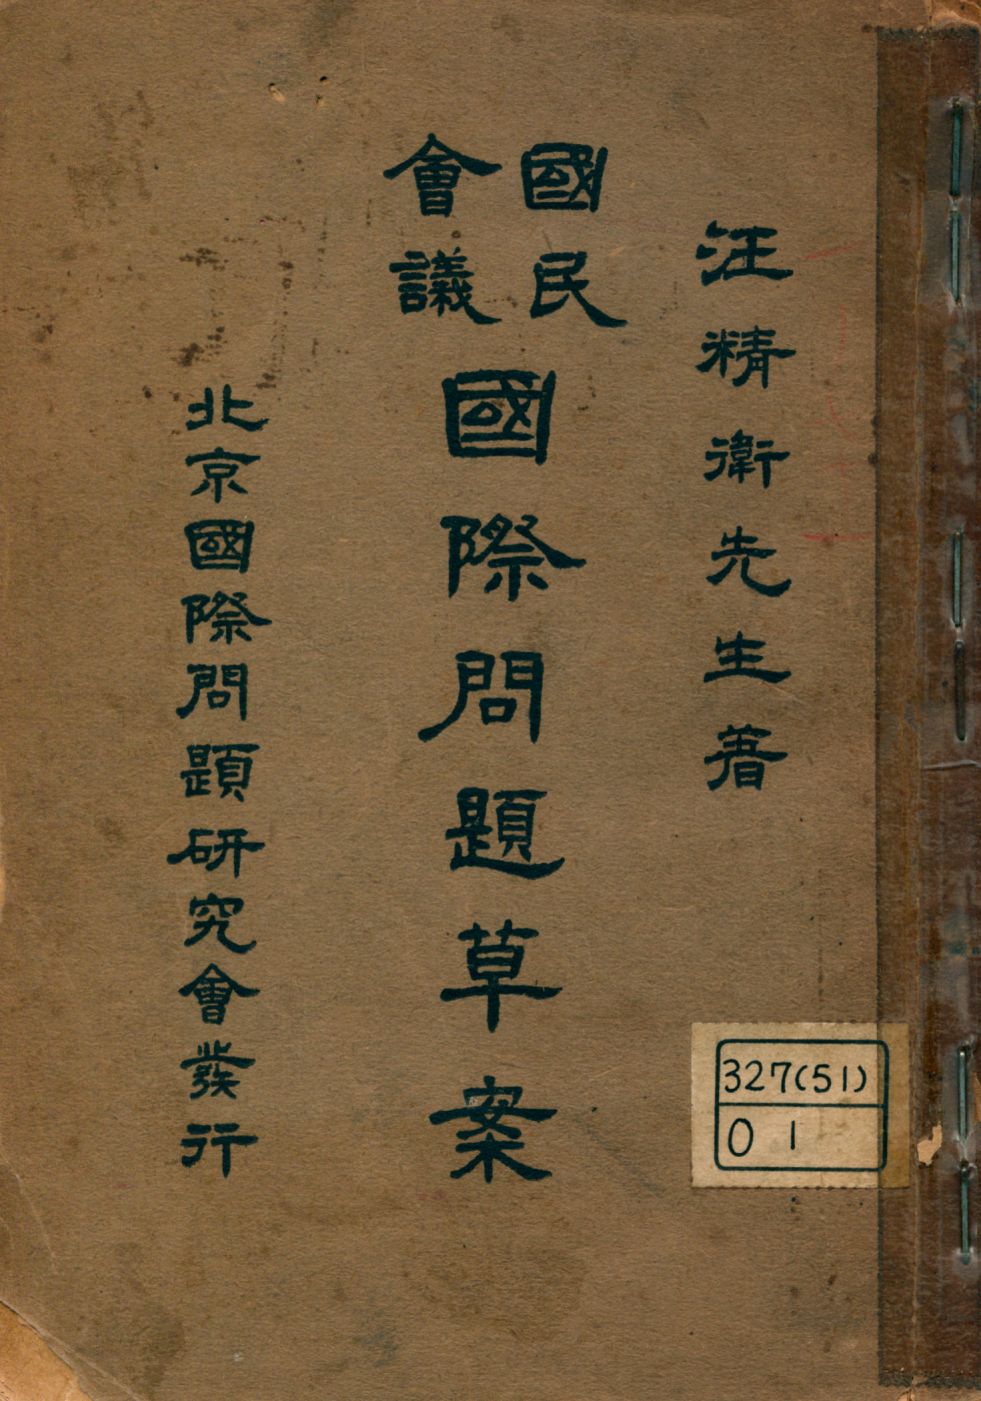 汪精衛先生著
國民
會議
國際問題草案
北京國際問題研究會發行
327(51)
01